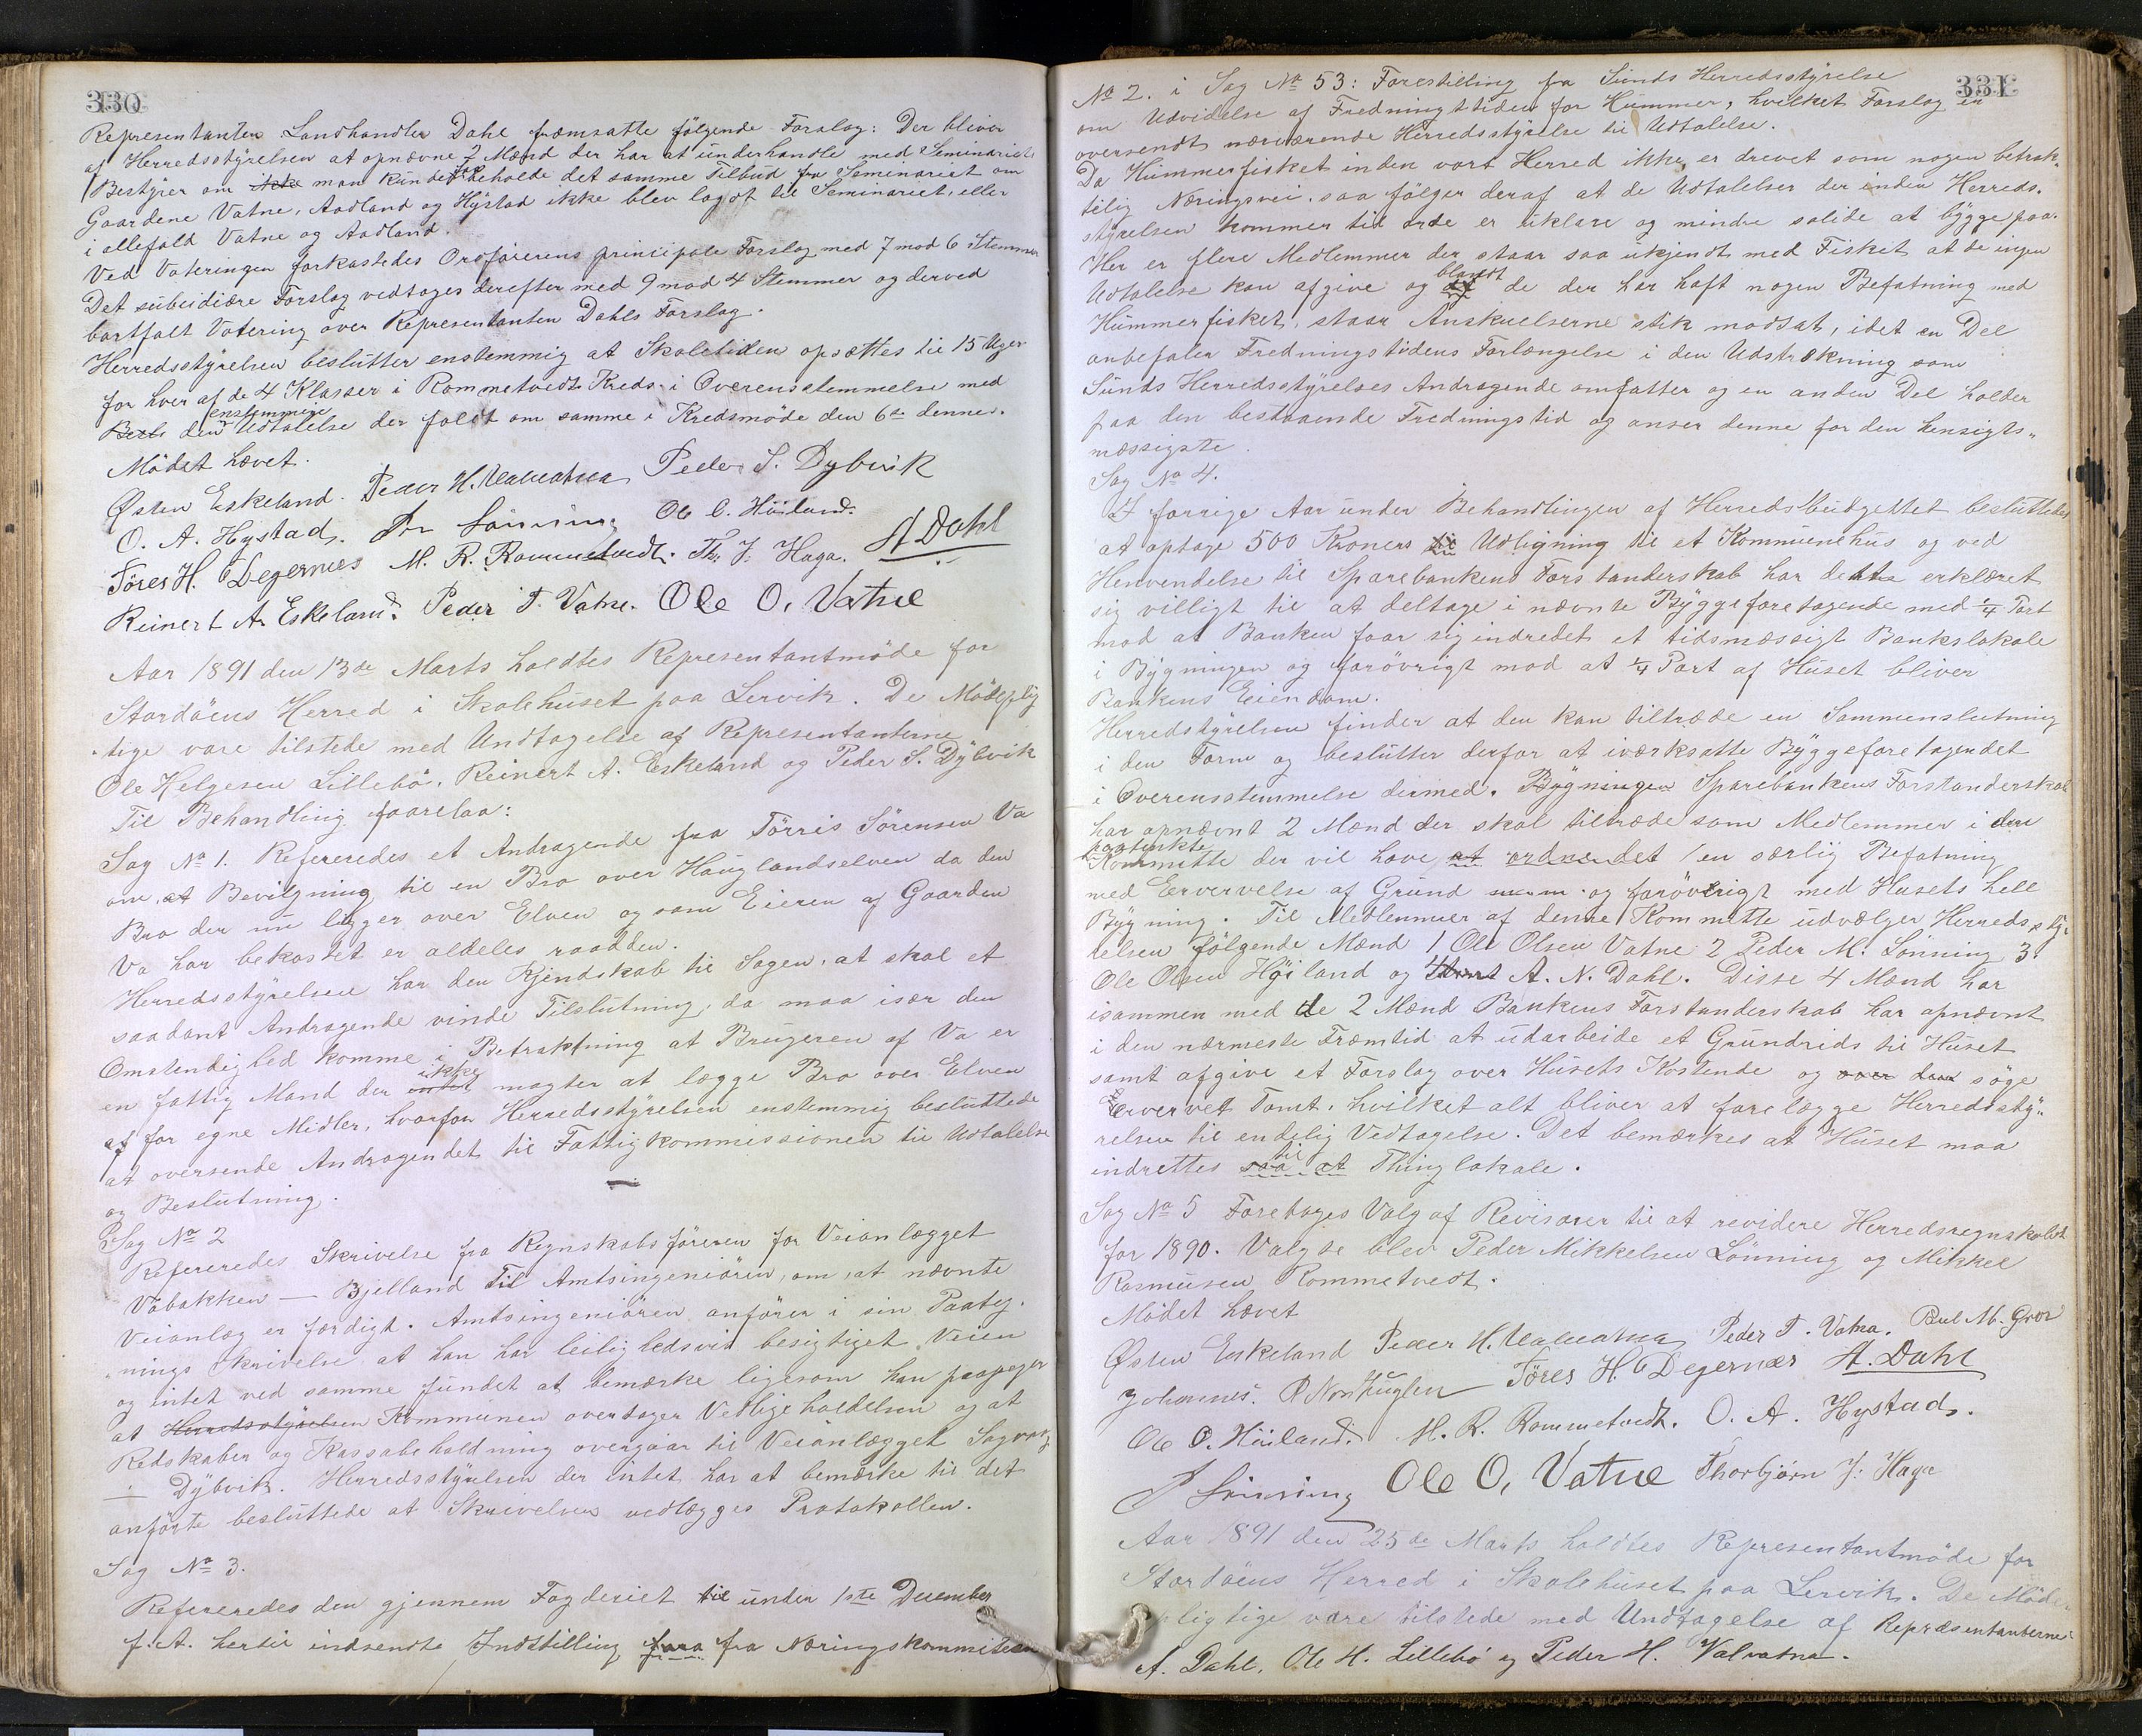 330
Representanten Landhandler Dahl fræmsatte følgende Forslag: Der bliver
af Herredsstyrelsen at opnævne 2 Mænd der har at underhandle med Seminariets
Bestyrer om ikke man kunde faa beholde det samme Tilbud fra Seminariet om
Gaardene Vatne, Aadland og Hystad ikke blev lagdt til Seminariet, eller
i allefald Vatne og Aadland.
Ved Voteringen forkastedes Ordførerens principale Forslag med 7 mod 6 Stemmer
Det subsidiære Forslag vedtoges derefter med 9 mod 4 Stemmer og derved
bortfalt Votering over Representanten Dahls Forslag.
Herredsstyrelsen beslutter enstemmig at Skoletiden opsættes til 15 Uger
for hver af de 4 Klasser i Rommetvedt Kreds i Overensstemmelse med
den enstemmige Udtalelse der faldt om samme i Kredsmøde den 6te dennes.
Mødet hævet.
Østen Eskeland. Peder H. Valvatna Peder S. Dybvik
O. A. Hystad. P M Lønning Ole O. Høiland.
Tøres H. Degernes M. R. Rommetvedt. Th. J. Haga. A Dahl
Reinert A. Eskeland. Peder T. Vatne. Ole O. Vatne
Aar 1891 den 13de Marts holdtes Representantmøde for
Stordøens Herred i Skolehuset paa Lervik. De Mødeplig
tige vare tilstede med Undtagelse af Representanterne
Ole Helgesen Lillebø, Reinert A. Eskeland og Peder S. Dybvik
Til Behandling foorelaa:
Sag No 1. Refereredes et Andragende fra Tørris Sørensen Va
om at Bevilgning til en Bro over Hauglandselven da den
Bro der nu ligger over Elven og som Eieren af Gaarden
Va har bekostet er aldeles raadden.
Herredsstyrelsen har den Kjendskab til Sagen, at skal et
saadant Andragende vinde Tilslutning, da maa især den
Omstendighed komme i Betraktning at Brugeren af Va er
en fattig Mand der intet ikke magter at lægge Bro over Elven
af for egne Midler, hvorfor Herredsstyrelsen enstemmig besluttede
at oversende Andragendet til Fattigkommissionen til Udtalelse
og Beslutning.
Sag No 2
Refereredes Skrivelse fra Regnskabsføreren for Veianlægget
Vabakken — Bjelland Til Amtsingeniøren, om, at nævnte
Veianlæg er færdigt. Amtsingeniøren anfører i sin Paateg.
nings Skrivelse at han har leilighedsvis besigtiget Veien
og intet ved samme fundet at bemærke ligesom han paapeger
at Herredsstyrelsen Kommunen overtager Vedligeholdelsen og at
Redskaber og Kassabeholdning overgaar til Veianlægget Sagvaag
÷ Dybvik. Herredsstyrelsen der intet har at bemærke til det
anførte besluttede at Skrivelsen vedlægges Protokollen.
Sag No 3.
Refereredes den gjennem Fogderiet til under 1ste December
f. A. hertil indsendte Indstilling fara fra Næringskommiteen
331
No 2. i Sag No 53: Forestilling fra Sunds Herredsstyrelse
om Udvidelse af Fredningttiden for Hummer, hvilket Forslag er
oversendt nærværende Herredsstyrelse til Udtalelse.
Da Hummerfisket inden vort Herred ikke er drevet som nogen betrak
telig Næringsvei, saa følger deraf at de Udtalelser der inden Herreds.
styrelsen kommer til orde er uklare og mindre solide at bygge paa.
Her er flere Medlemmer der staar saa ukjendt med Fisket at de ingen
Udtalelse kan afgive og af blandt de der har haft nogen Befatning med
Hummerfisket, staar Anskuelserne stik modsat, idet en Del
anbefaler Fredningstidens Forlængelse i den Udstrekning som
Sunds Herredsstyrelses Andragende omfatter og en anden Del holder
paa den bestaaende Fredningstid og anser denne for den hensigts„
mæssigste.
Sag No 4.
I forrige Aar under Behandlingen af Herredsbudgettet besluttedes
at optage 500 Kroners til Udligning til et Kommunehus og ved
Henvendelse til Sparebankens Forstanderskab har dette erklæret
sig villigt til at deltage i nævnte Byggeforetagende med ¼ Part
mod at Banken faar sig indredet et tidsmæssigt Bankslokale
i Bygningen og forøvrigt mod at ¼ Part af Huset bliver
Bankens Eiendom.
Herredstyrelsen finder at den kan tiltræde en Sammenslutning
i den Form og beslutter derfor at iværksatte Byggeforetagendet
i Overensstemmelse dermed. Bygningen Sparebankens Forstanderskab
har opnævnt 2 Mænd der skal tiltræde som Medlemmer i den
paatenkte Kommitte der vil have at ordne det en særlig Befatning
med Erervelse af Grund og forøvrigt med Husets hele
Bygning. Til Medlemmer af denne Kommitte udvælger Herredssty
relsen følgende Mænd 1 Ole Olsen Vatne 2 Peder M. Lønning 3
Ole Olsen Høiland og 4 A. N. Dahl. Disse 4 Mænd har
isammen med de 2 Mænd Bankens Forstanderskab har opnævnt
i den nærmeste Fræmtid at udarbeide et Grundrids til Huset
samt afgive et Forslag over Husets Kostende og over den søge
Ervervet Tomt, hvilket alt bliver at forelægge Herredssty„
relsen til endelig Vedtagelse. Det bemærkes at Huset maa
indrettes saa at til Thinglokale.
Sag No 5 Foretoges Valg af Revisorer til at revidere Herredsregnskabet
for 1890. Valgte blev Peder Mikkelsen Lønning og Mikkel
Rasmusen Rommetvedt.
Mødet hævet
Østen Eskeland Peder H. Valvatna Peder T. Vatna. Poul M. Grov
Johannes. P Nordhuglen Tøres H. Degernær A. Dahl
Ole O. Høiland. M. R. Rommetvedt. O. A. Hystad.
P Lønning Ole O. Vatne Thorbjørn J. Haga
Aar 1891 den 25de Marts holdtes Representantmøde for
Stordøens Herred i Skolehuset paa Lervik. De Møde
pligtige vare tilstede med Undtagelse af Repræsentanterne:
A. Dahl, Ole H. Lillebø og Peder H. Valvatna.